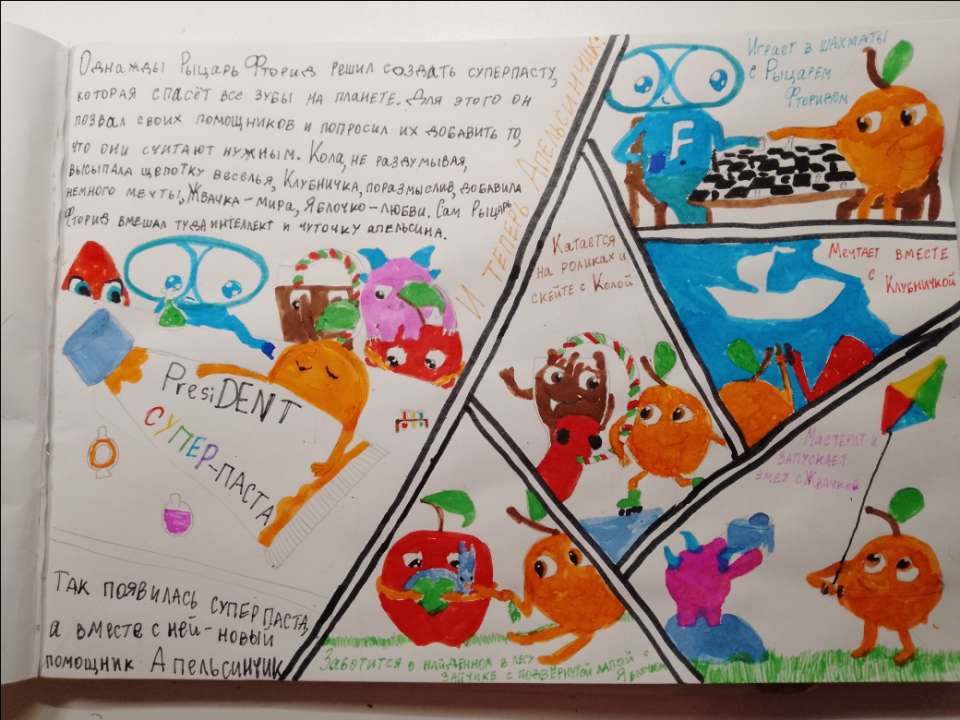 Однажды Рыцарь Фторид решил создать суперпасту,
которая спасёт все зубы на планете. Для этого он
позвал своих помощников и попросил их добавить то,
что они считают нужным. Кола, не раздумывая,
высыпала щепотку веселья, Клубничка, поразмыслив, добавила
немного мечты, Жвачка - мира, Яблочко - любви. Сам Рыцарь
Фторид вмешал туда интеллект и чуточку апельсина.
PresiDENT
СУПЕР-ПАСТА
Так появилась суперпаста,
а вместе с ней - новый
помощник Апельсинчик
И теперь Апельсинчик:
Играет в шахматы
с Рыцарем
Фторидом
F
Катается
на роликах и
скейте с Колой
Мечтает вместе
с
Клубничкой
Мастерит и
запускает
змея с Жвачкой
Заботится о найденном в лесу
зайчике с подвёрнутой лапой с
Яблочком